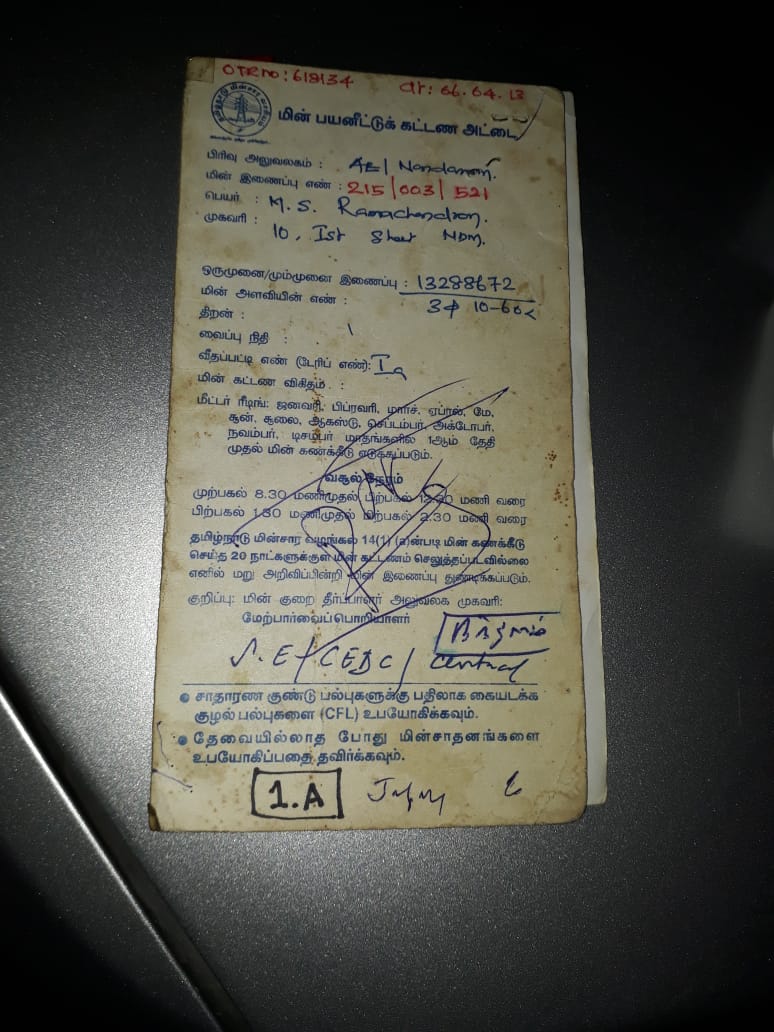 OTR no: 618134 dt: 66.04.13
மின் பயனீட்டுக் கட்டண அட்டை
பிரிவு அலுவலகம் : AE/ Nandanam.
மின் இணைப்பு எண் : 215/003/521
பெயர் : M.S. Ramachandran.
முகவரி : 10, Ist Street NDM.
ஒருமுனை/மும்முனை இணைப்பு : 13288672
மின் அளவியின் எண் : 3φ 10-60
திறன் :
வைப்பு நிதி :
வீதப்பட்டி எண் (டேரிப் எண்): Ia
மின் கட்டண விகிதம் :
மீட்டர் ரீடிங்: ஜனவரி, பிப்ரவரி, மார்ச், ஏப்ரல், மே,
சூன், சூலை, ஆகஸ்டு, செப்டம்பர், அக்டோபர்,
நவம்பர், டிசம்பர் மாதங்களில் 1ஆம் தேதி
முதல் மின் கணக்கீடு எடுக்கப்படும்.
வசூல் நேரம்
முற்பகல் 8.30 மணிமுதல் பிற்பகல் மணி வரை
பிற்பகல் 1.30 மணிமுதல் பிற்பகல் 2.30 மணி வரை
தமிழ்நாடு மின்சார வழங்கல் 14(1) (a)ன்படி மின் கணக்கீடு
செய்த 20 நாட்களுக்குள் மின் கட்டணம் செலுத்தப்படவில்லை
எனில் மறு அறிவிப்பின்றி மின் இணைப்பு துண்டிக்கப்படும்.
குறிப்பு: மின் குறை தீர்ப்பாளர் அலுவலக முகவரி:
மேற்பார்வைப்பொறியாளர்
S.E/CEDC/ Central
● சாதாரண குண்டு பல்புகளுக்கு பதிலாக கையடக்க
குழல் பல்புகளை (CFL) உபயோகிக்கவும்.
● தேவையில்லாத போது மின்சாதனங்களை
உபயோகிப்பதை தவிர்க்கவும்.
1.A